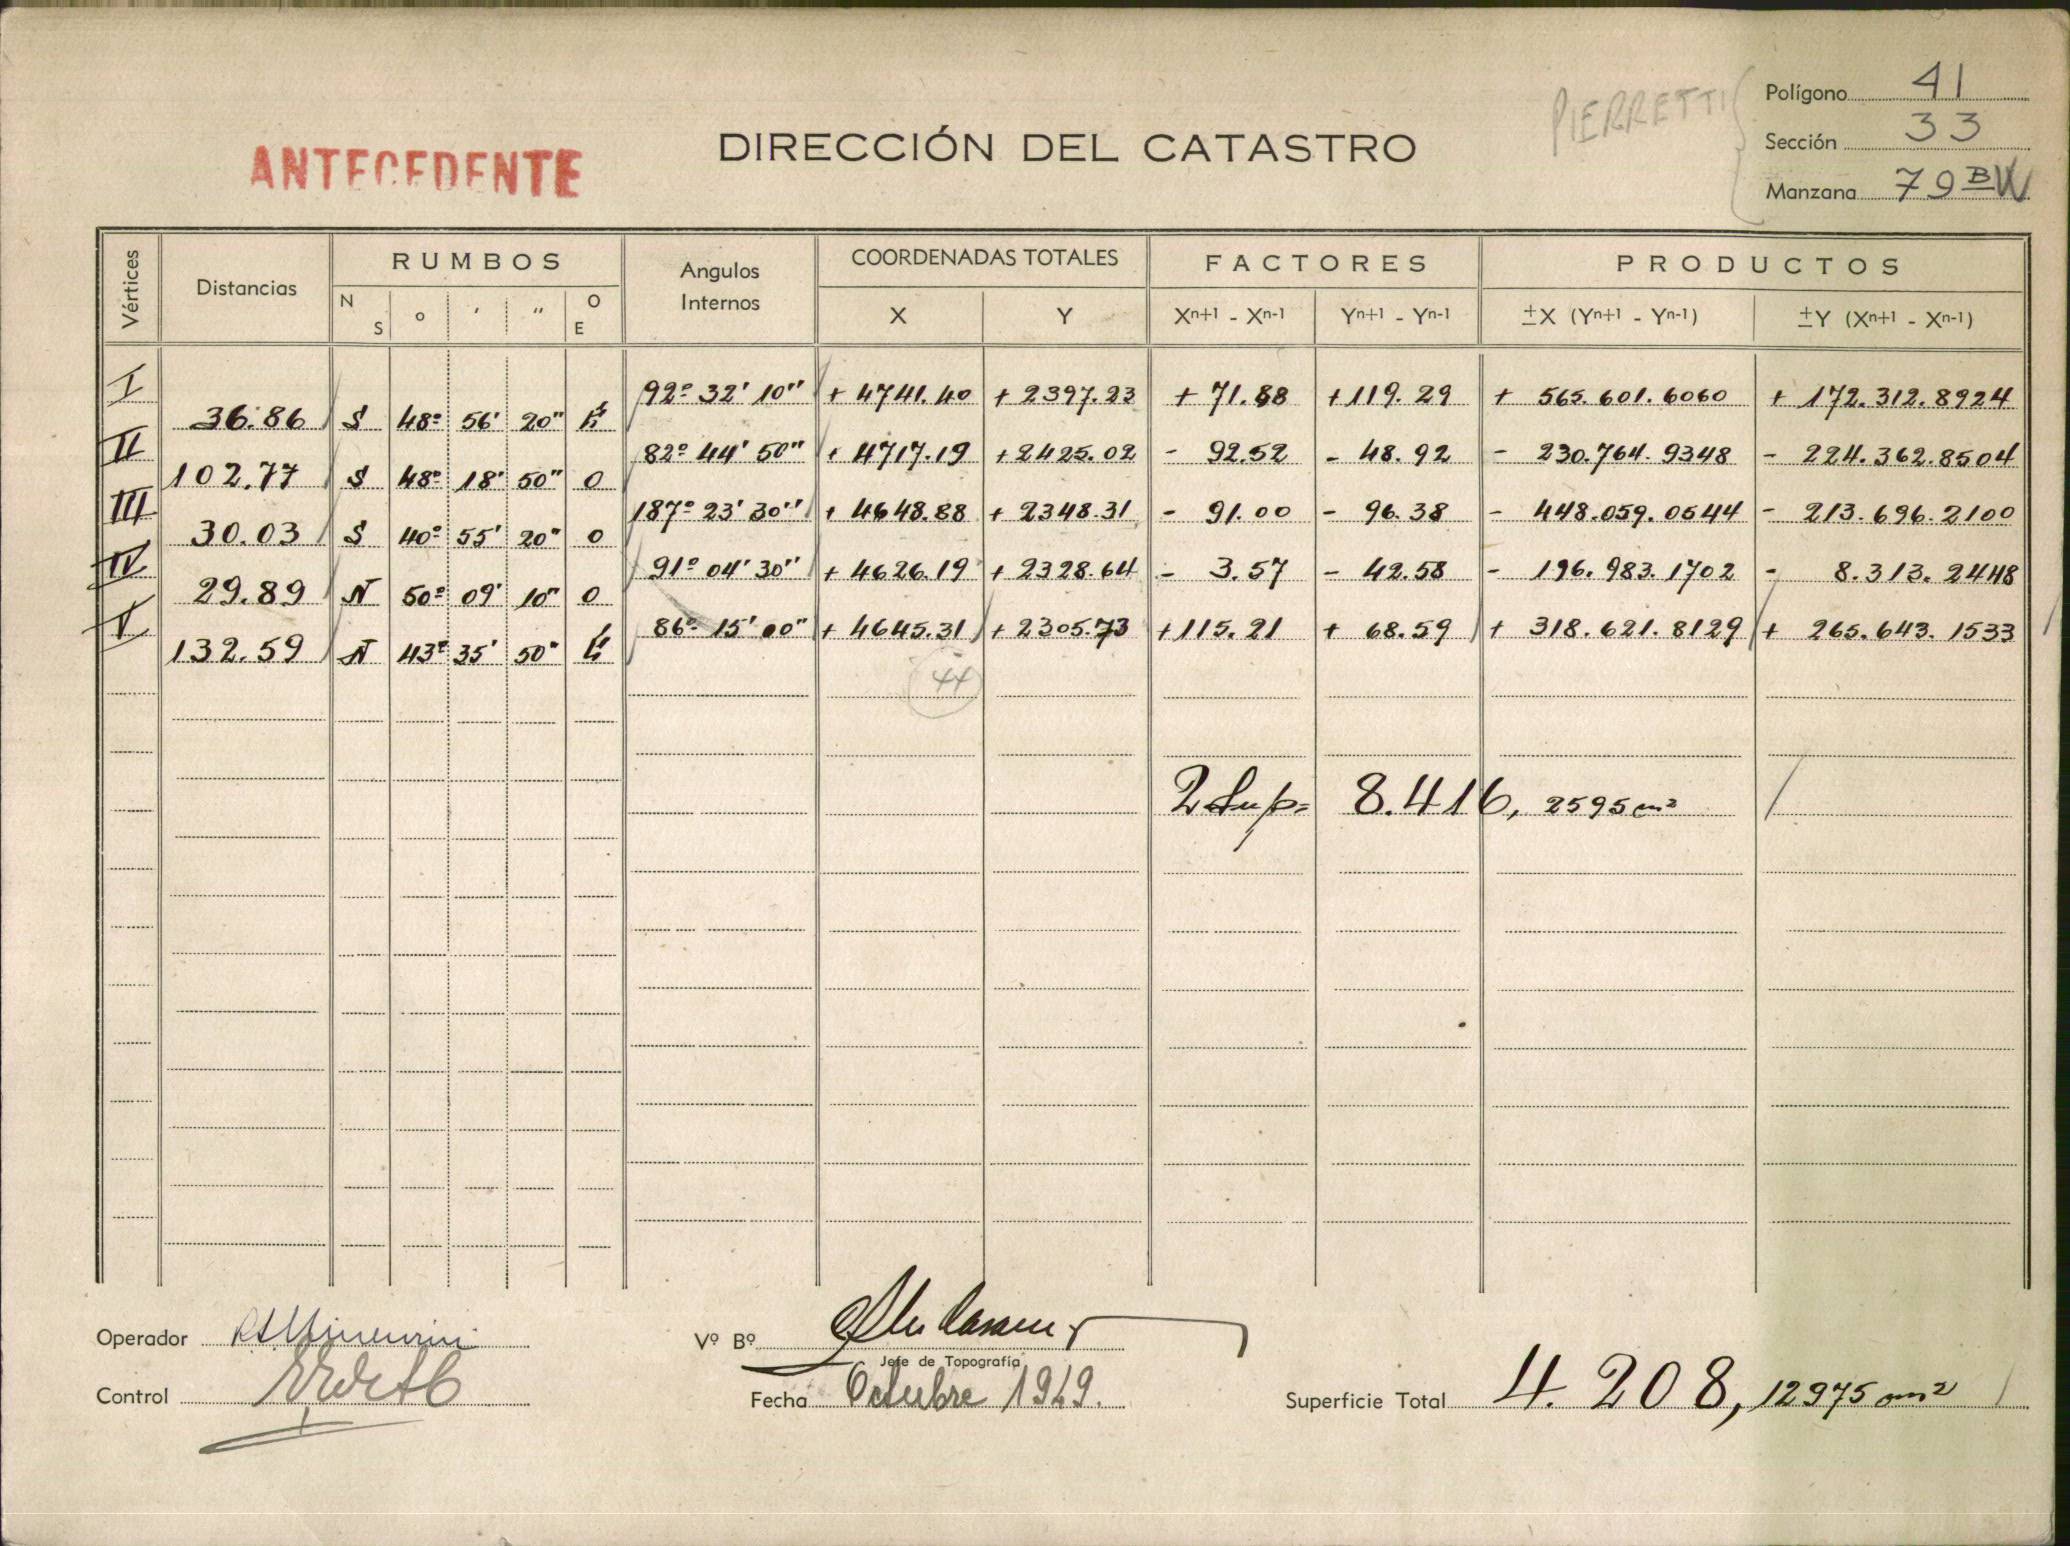 Polígono 41
PIERRETTI
Sección 33
Manzana 79 B W
ANTECEDENTE
DIRECCIÓN DEL CATASTRO
Vértices Distancias RUMBOS Angulos Internos COORDENADAS TOTALES FACTORES PRODUCTOS
N S o ′ ″ O E X Y Xn+1 - Xn-1 Yn+1 - Yn-1 ±X (Yn+1 - Yn-1) ±Y (Xn+1 - Xn-1)
I 92º 32' 10" + 4741.40 + 2397.23 + 71.88 +119.29 + 565.601.6060 + 172.312.8924
36.86 S 48º 56' 20" E
II 82º 44' 50" + 4717.19 +2425.02 - 92.52 - 48.92 - 230.764.9348 - 224.362.8504
102.77 S 48º 18' 50" O
III 187º 23' 30" + 4648.88 + 2348.31 - 91.00 - 96.38 - 448.059.0544 - 213.696.2100
30.03 S 40º 55' 20" O
IV 91º 04' 30" + 4626.19 + 2328.64 - 3.57 - 42.58 - 196.983.1702 - 8.313.2448
29.89 N 50º 09' 10" O
V 86º 15' 00" + 4645.31 + 2305.73 +115.21 + 68.59 + 318.621.8129 + 265.643.1533
132.59 N 43º 35' 50" E
44
2 Sup= 8.416, 2595 m²
Operador
Vº Bº
Jefe de Topografía
Control
Fecha Octubre 1949.
Superficie Total 4.208,12975 m²